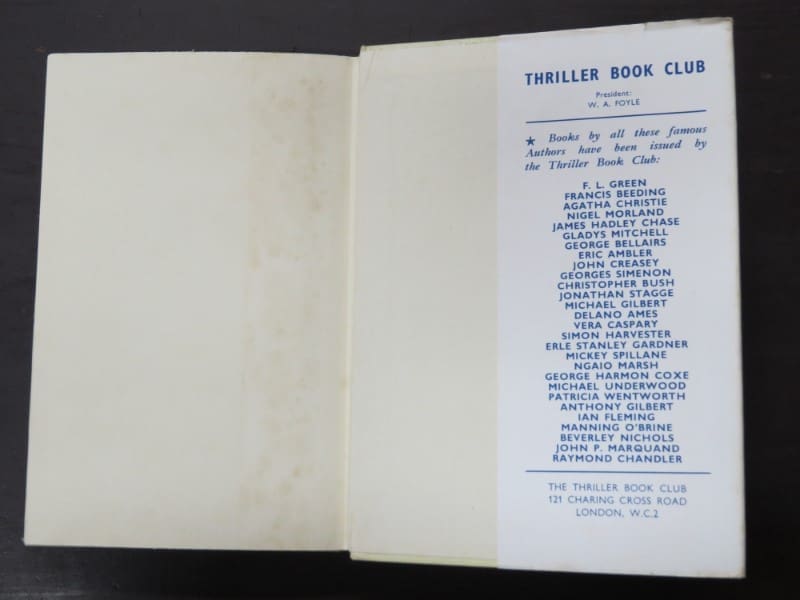 THRILLER BOOK CLUB
President:
W. A. FOYLE
★ Books by all these famous
Authors have been issued by
the Thriller Book Club:
F. L. GREEN
FRANCIS BEEDING
AGATHA CHRISTIE
NIGEL MORLAND
JAMES HADLEY CHASE
GLADYS MITCHELL
GEORGE BELLAIRS
ERIC AMBLER
JOHN CREASEY
GEORGES SIMENON
CHRISTOPHER BUSH
JONATHAN STAGGE
MICHAEL GILBERT
DELANO AMES
VERA CASPARY
SIMON HARVESTER
ERLE STANLEY GARDNER
MICKEY SPILLANE
NGAIO MARSH
GEORGE HARMON COXE
MICHAEL UNDERWOOD
PATRICIA WENTWORTH
ANTHONY GILBERT
IAN FLEMING
MANNING O'BRINE
BEVERLEY NICHOLS
JOHN P. MARQUAND
RAYMOND CHANDLER
THE THRILLER BOOK CLUB
121 CHARING CROSS ROAD
LONDON, W.C.2